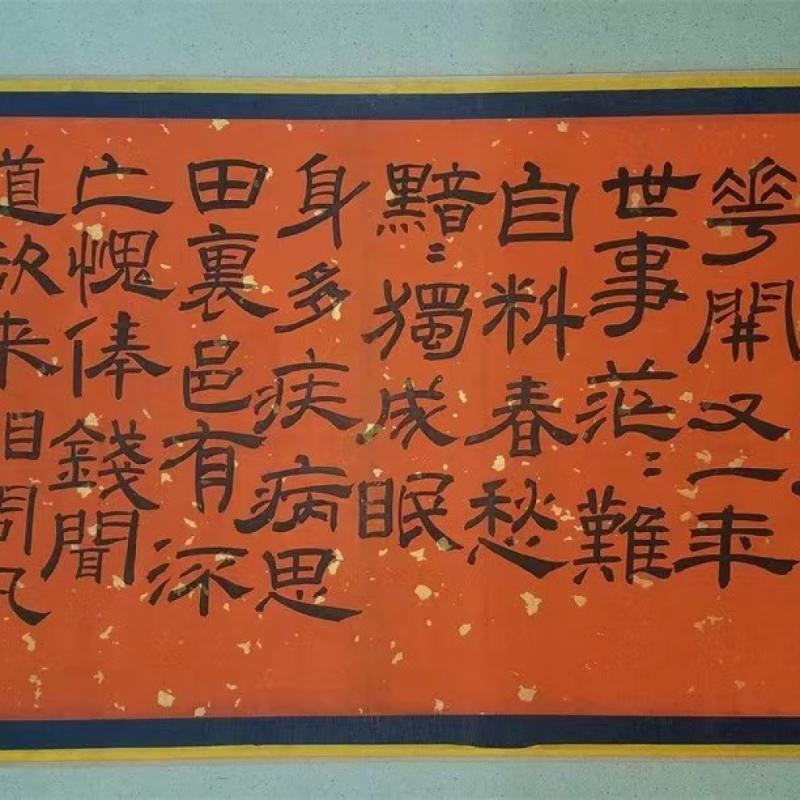 華開又一年
世事茫〻難
自料春愁
黯〻獨成眠
身多疾病思
田裏邑有流
亡愧俸錢聞
道欲来相問